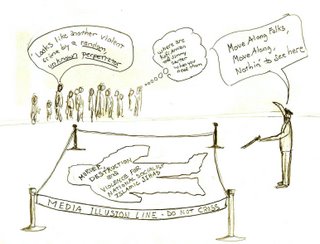 Looks like another violent
crime by a random,
unknown perpetrator
where are
Kofi Annan
and Jimmy
Carter
when you
need them
Move Along Folks,
Move Along,
Nothin' to see here
MURDER,
DESTRUCTION
AND
VIOLENCE FOR
NATIONAL SOCIALIST
ISLAMIC JIHAD
MEDIA ILLUSION LINE - DO NOT CROSS